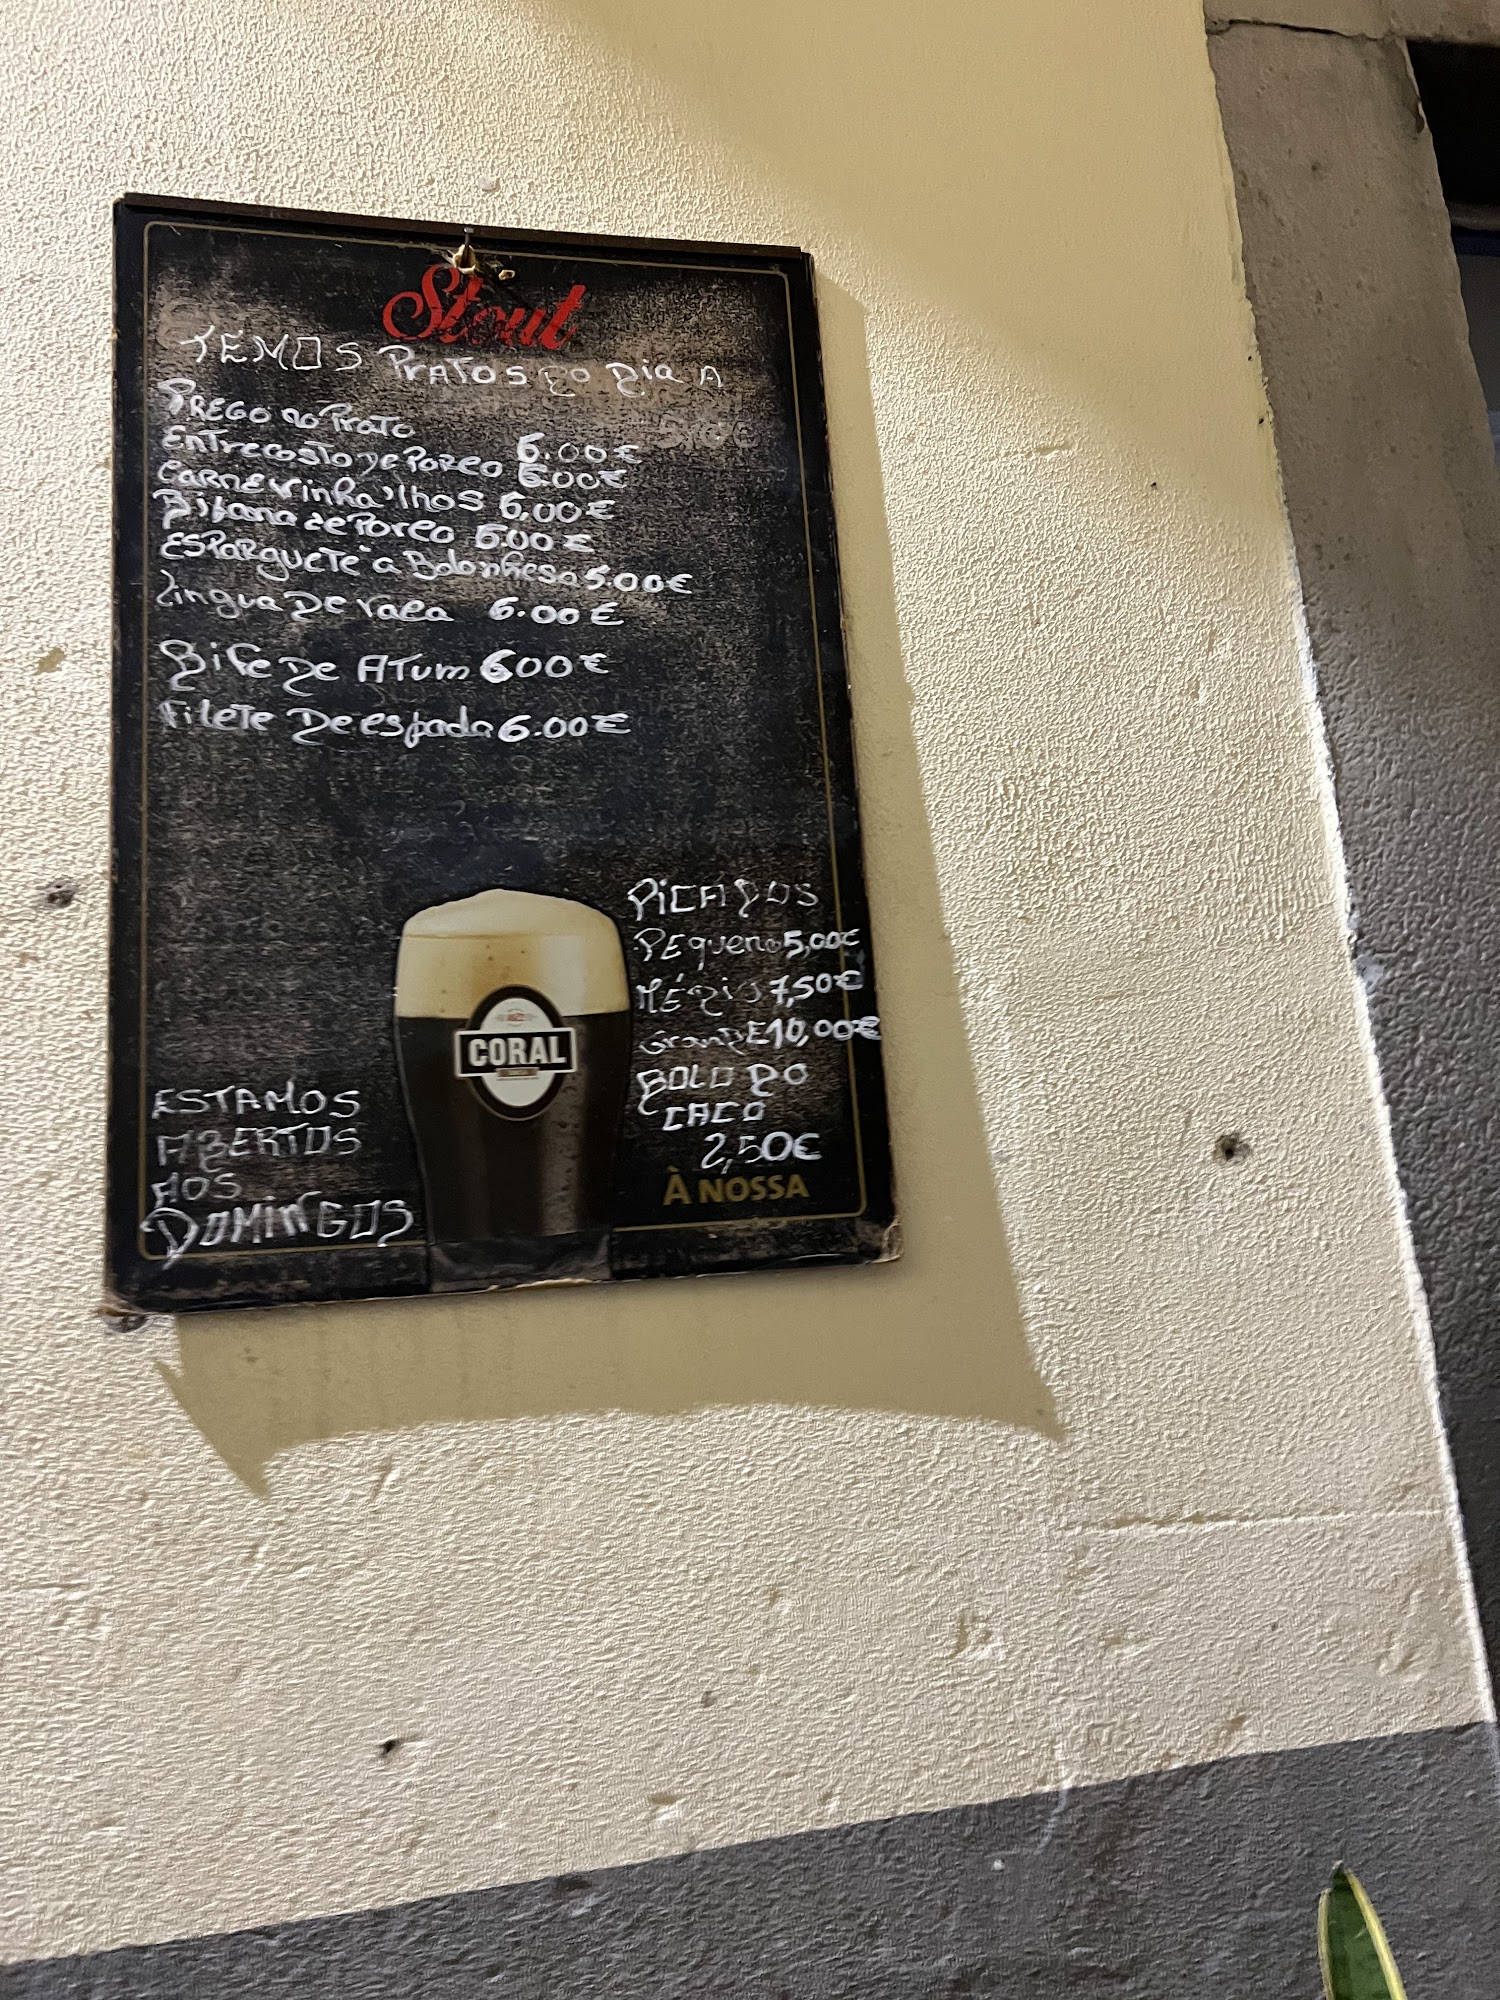 Stout
TEMOS PRATOS DO DIA A
PREGO no PraTo 6.00€
ENTrecosTo De PORCO 6.00€
CARNE vinha'lhos 6,00€
Bifana De Porco 6.00€
ESPARGUETE à Bolonhesa 5.00€
Lingua De vaca 6.00€
Bife De ATum 6.00€
FileTe De espada 6.00€
PICADOS
PEqueno 5,00€
MÉDIO 7,50€
GranDE 10,00€
BOLO DO
CACO
2,50€
À NOSSA
CORAL
ESTAMOS
ABERTOS
AOS
DOMINGOS